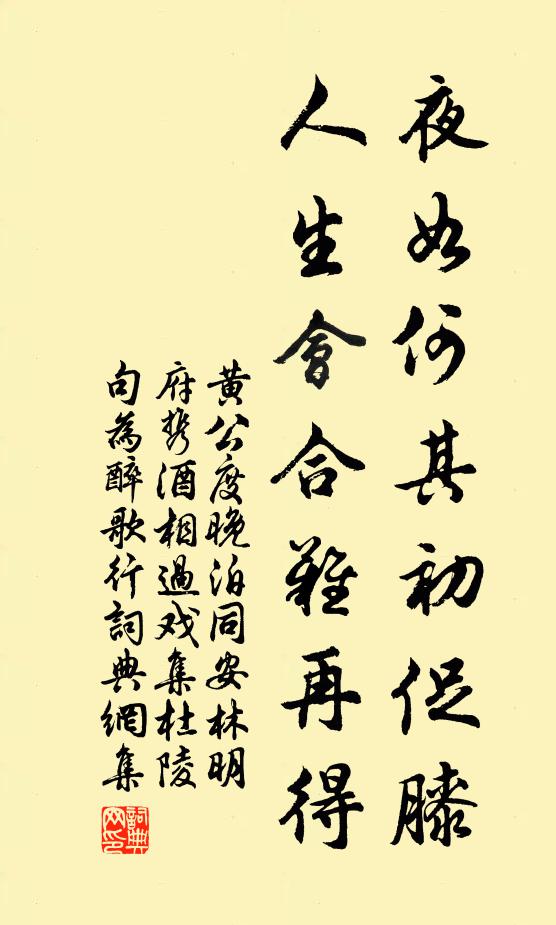 夜如何其初促膝
人生會合難再得
黄公度晚泊同安林明
府携酒相過戏集杜陵
句為醉歌行詞典網集
詞典网印